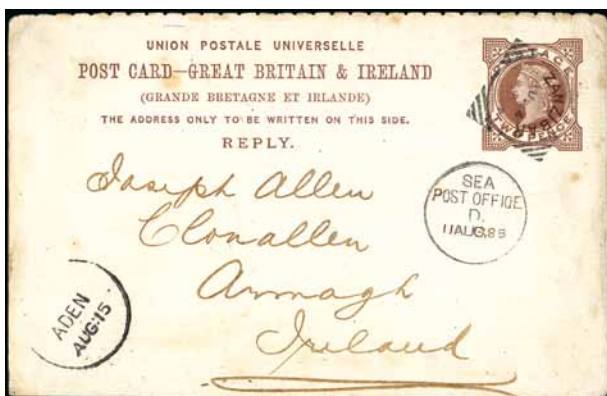 UNION POSTALE UNIVERSELLE
POST CARD—GREAT BRITAIN & IRELAND
(GRANDE BRETAGNE ET IRLANDE)
THE ADDRESS ONLY TO BE WRITTEN ON THIS SIDE.
REPLY.
POSTAGE
TWO PENCE
ZANZIBAR
Joseph Allen
Clonallen
Armagh
Ireland
SEA
POST OFFICE
D.
11AUG.88
ADEN
AUG:15